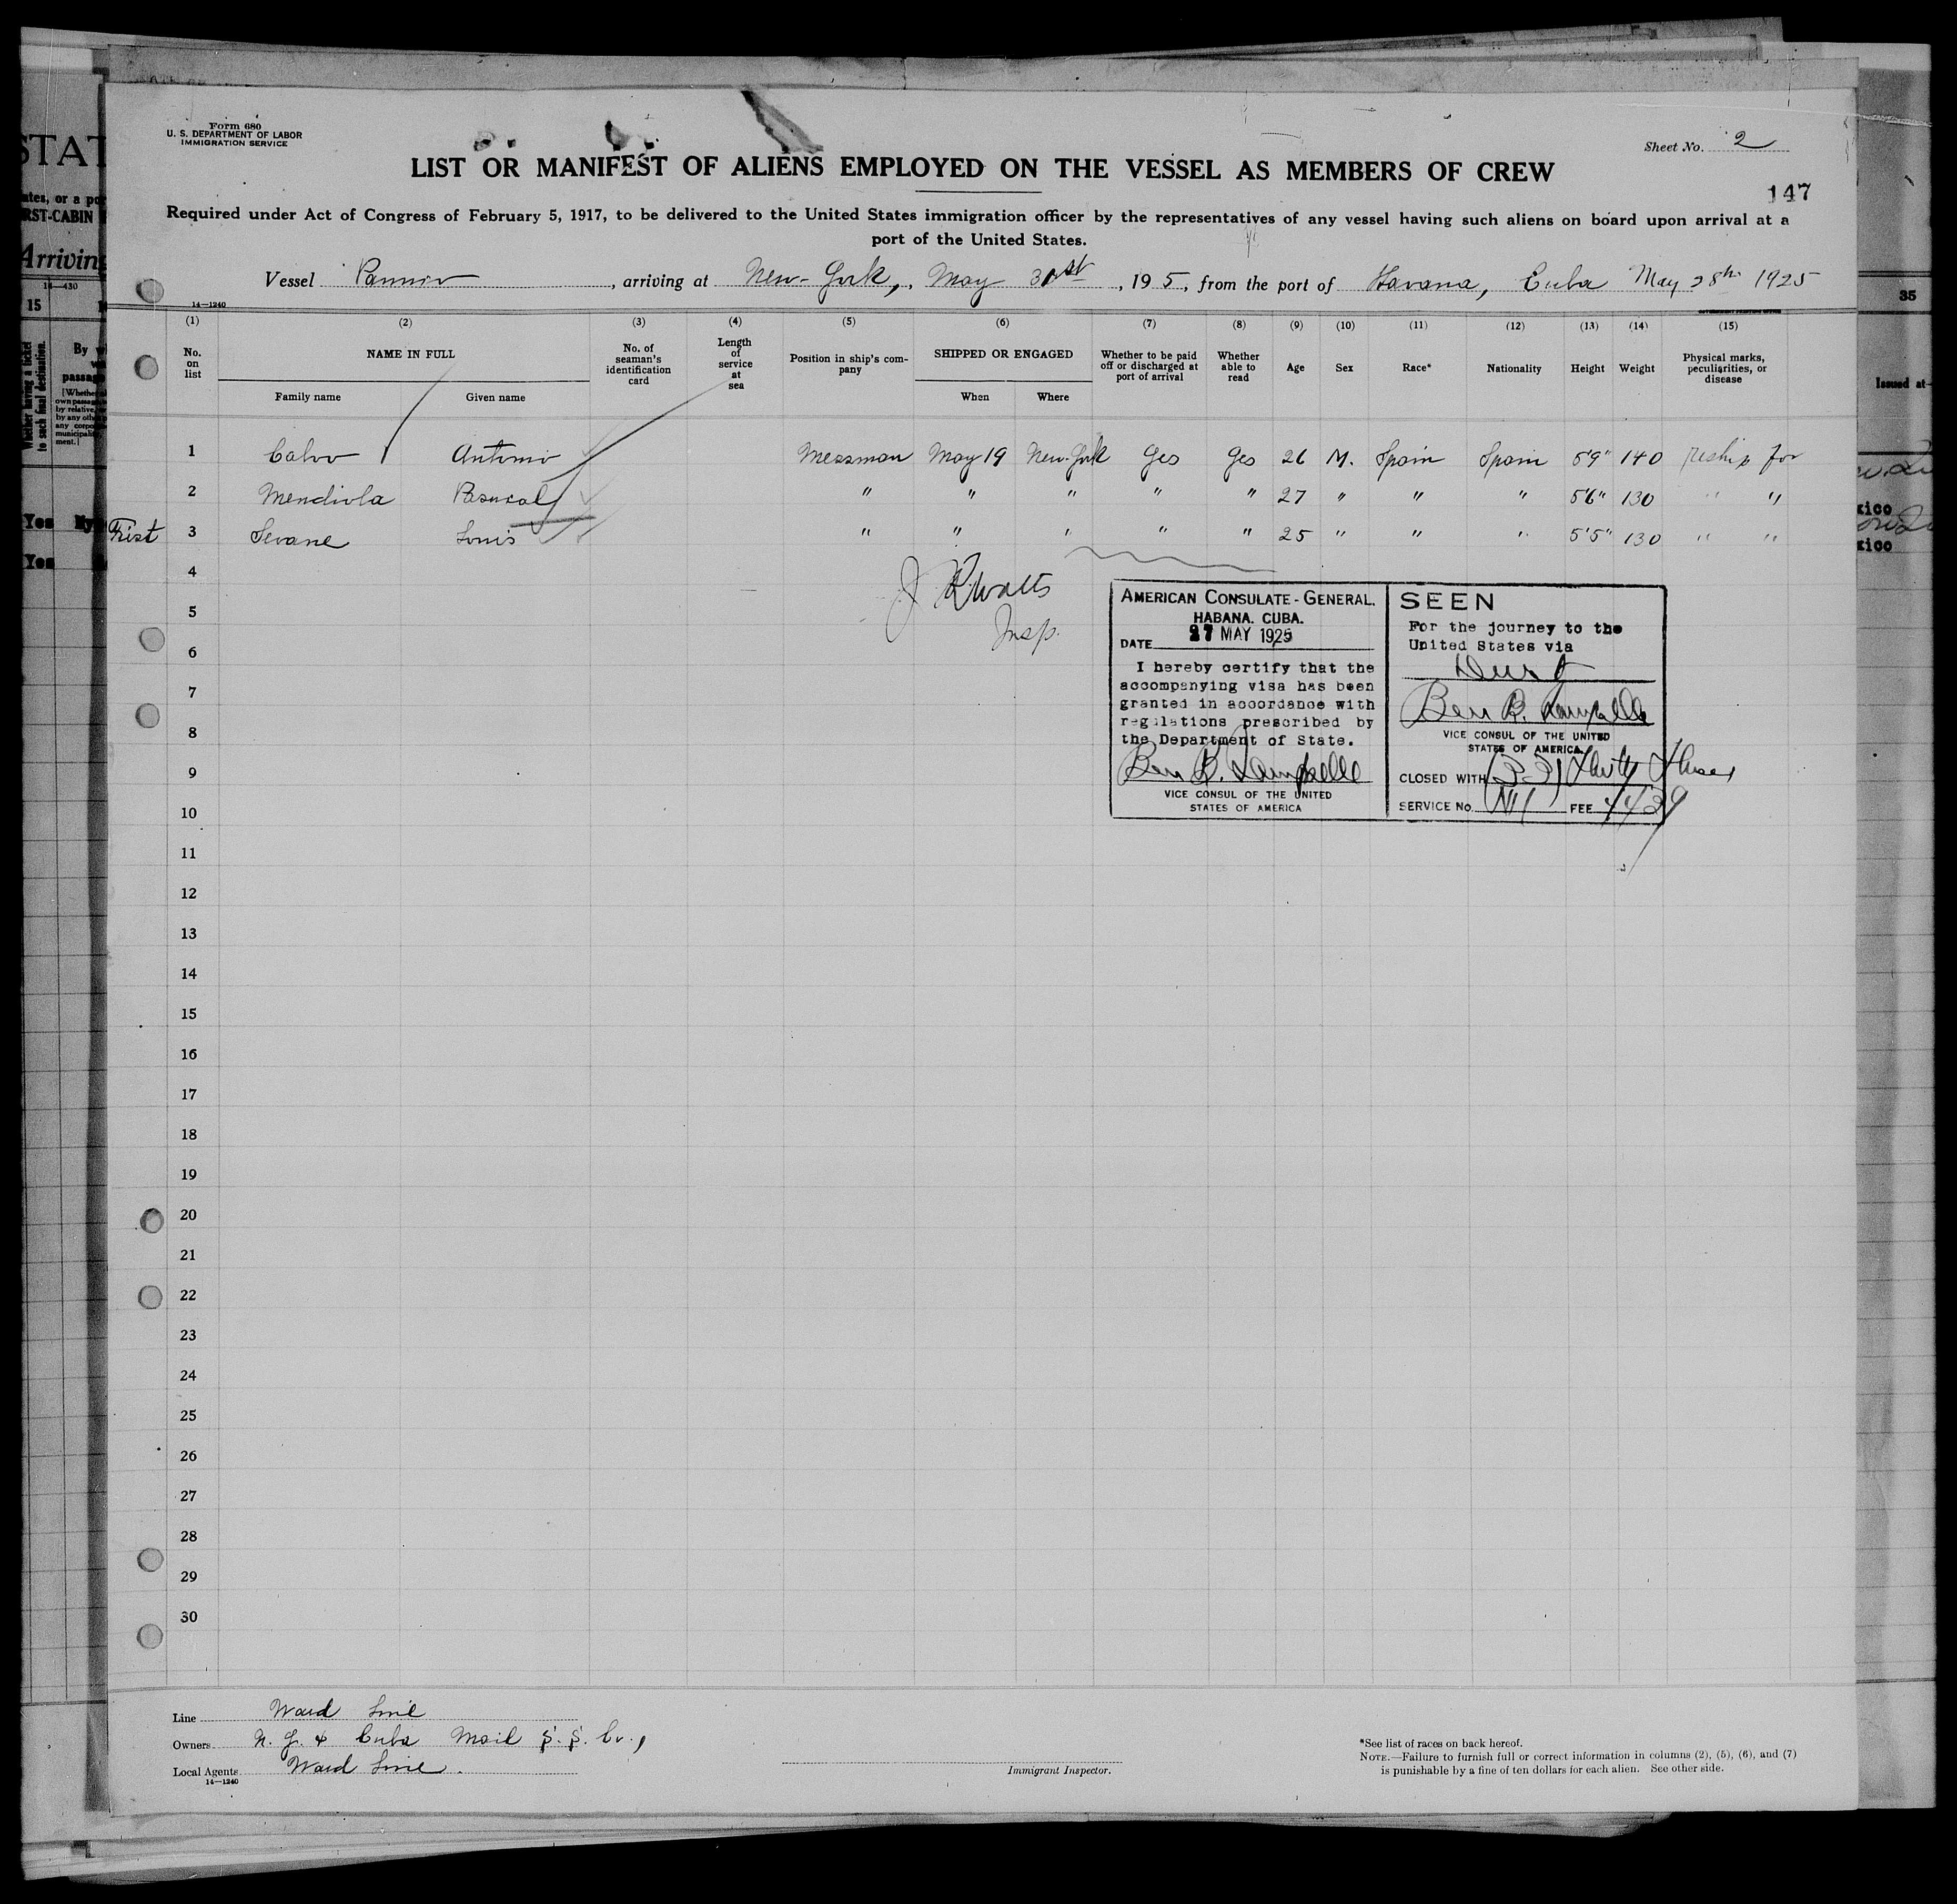 Form 680
U. S. DEPARTMENT OF LABOR
IMMIGRATION SERVICE
Sheet No. 2
LIST OR MANIFEST OF ALIENS EMPLOYED ON THE VESSEL AS MEMBERS OF CREW
147
Required under Act of Congress of February 5, 1917, to be delivered to the United States immigration officer by the representatives of any vessel having such aliens on board upon arrival at a
port of the United States.
Vessel , arriving at New-York, May 31st, 195, from the port of Havana, Cuba May 28th 1925
14—1240
(1) (2) (3) (4) (5) (6) (7) (8) (9) (10) (11) (12) (13) (14) (15)
No. on list NAME IN FULL Family name Given name No. of seaman's identification card Length of service at sea Position in ship's company SHIPPED OR ENGAGED When Where Whether to be paid off or discharged at port of arrival Whether able to read Age Sex Race* Nationality Height Weight Physical marks, peculiarities, or disease
1 Calvo Antonio Messman May 19 New-York Yes Yes 26 M. Spain Spain 5'9" 140 reship for
2 Mendiola Pascual " " " " " 27 " " " 5'6" 130 " "
First 3 Seoane Louis " " " " " 25 " " " 5'5" 130 " "
4
5
6
7
8
9
10
11
12
13
14
15
16
17
18
19
20
21
22
23
24
25
26
27
28
29
30
J R Watts
Insp.
AMERICAN CONSULATE-GENERAL.
HABANA. CUBA.
DATE 27 MAY 1925
I hereby certify that the
accompanying visa has been
granted in accordance with
regulations prescribed by
the Department of State.
VICE CONSUL OF THE UNITED
STATES OF AMERICA
SEEN
For the journey to the
United States via
VICE CONSUL OF THE UNITED
STATES OF AMERICA.
CLOSED WITH (33) Thirty Three
SERVICE No. FEE
Line Ward Line
Owners N. Y. & Cuba Mail S. S. Co.,
Local Agents Ward Line.
14—1240
Immigrant Inspector.
*See list of races on back hereof.
NOTE.—Failure to furnish full or correct information in columns (2), (5), (6), and (7)
is punishable by a fine of ten dollars for each alien. See other side.
STAT
RST-CABIN
Arriving
14—430
15
By
Yes
Yes
35
Issued at—